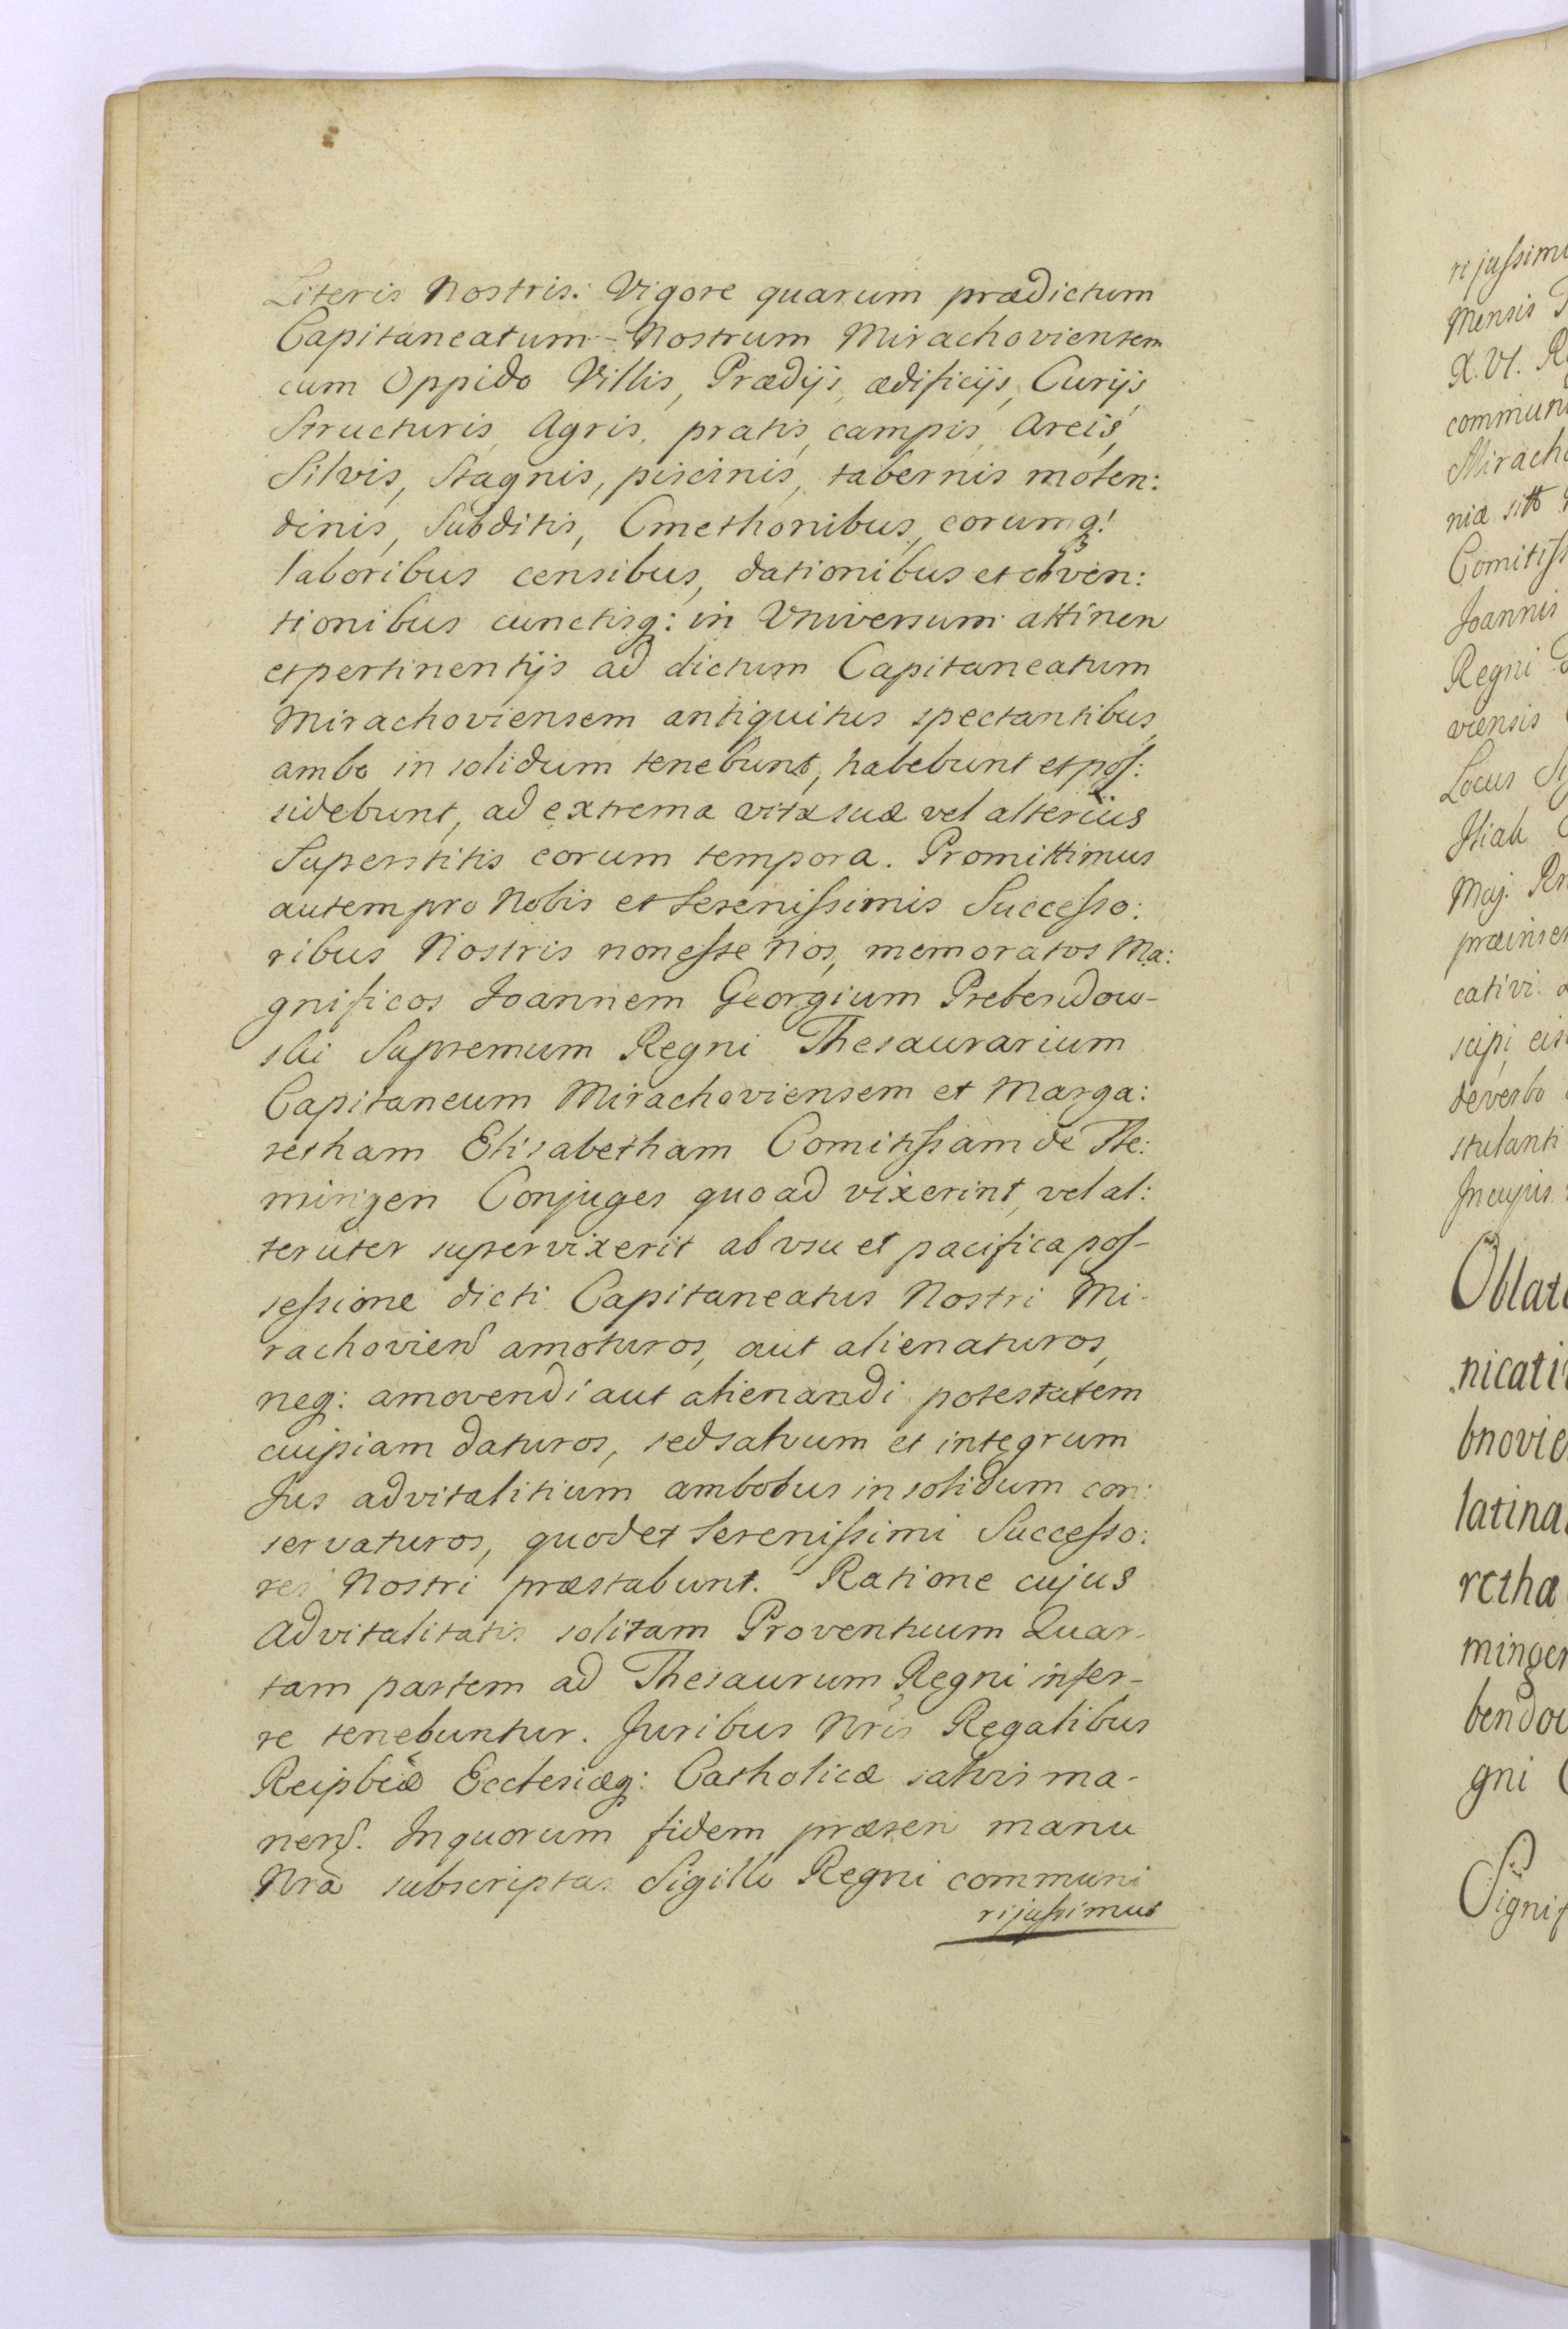 Literis Nostris: Vigore quarum prædictum
Capitaneatum - Nostrum Mirachoviensem
cum Oppido Villis, Prædijs, ædificijs, Curijs,
Structuris, Agris, pratis, campis, Areis,
Silvis, Stagnis, piscinis, tabernis molen:
dinis, Subditis, Cmethonibus, eorumq:
laboribus censibus, dationibus et obven:
tionibus cunctisq: in Vniversum attinen
et pertinentijs ad dictum Capitaneatum
Mirachoviensem antiquitus spectantibus,
ambo in solidum tenebunt, habebunt et pos:
sidebunt, ad extrema vitæ suæ vel alterius
Superstitis eorum tempora. Promittimus
autem pro Nobis et Serenissimis Successo:
ribus Nostris non esse Nos, memoratos Ma:
gnificos Joannem Georgium Prebendow-
ski Supremum Regni Thesaurarium
Capitaneum Mirachoviensem et Marga:
retham Elisabetham Comitissam de Fle:
mingen Conjuges quoad vixerint, vel al:
teruter supervixerit ab vsu et pacifica pos-
sessione dicti Capitaneatus Nostri Mi-
rachovien amoturos, aut alienaturos,
neq: amovendi aut alienandi potestatem
cuipiam daturos, sed salvum et integrum
Jus advitalitium ambobus in solidum con:
servaturos, quod et Serenissimi Successo:
res Nostri præstabunt. Ratione cujus
Advitalitatis solitam Proventuum Quar-
tam partem ad Thesaurum Regni infer-
re tenebuntur. Juribus Nris Regalibus
Reipbcæ Ecclesiæq: Catholicæ salvis ma-
nen. In quorum fidem præsen manu
Nra subscriptas Sigillo Regni communi
ri jussimus
ri jussimu
Mensis
communi
Miracho
niæ sitt
Comitiss
Joannis
Regni
viensis
Locus
Maj.
præinser
cativi
scipi eis
de verbo
stulanti
In cujus
Oblat
nicati
bnovie
latina
retha
minger
bendou
gni
Signif